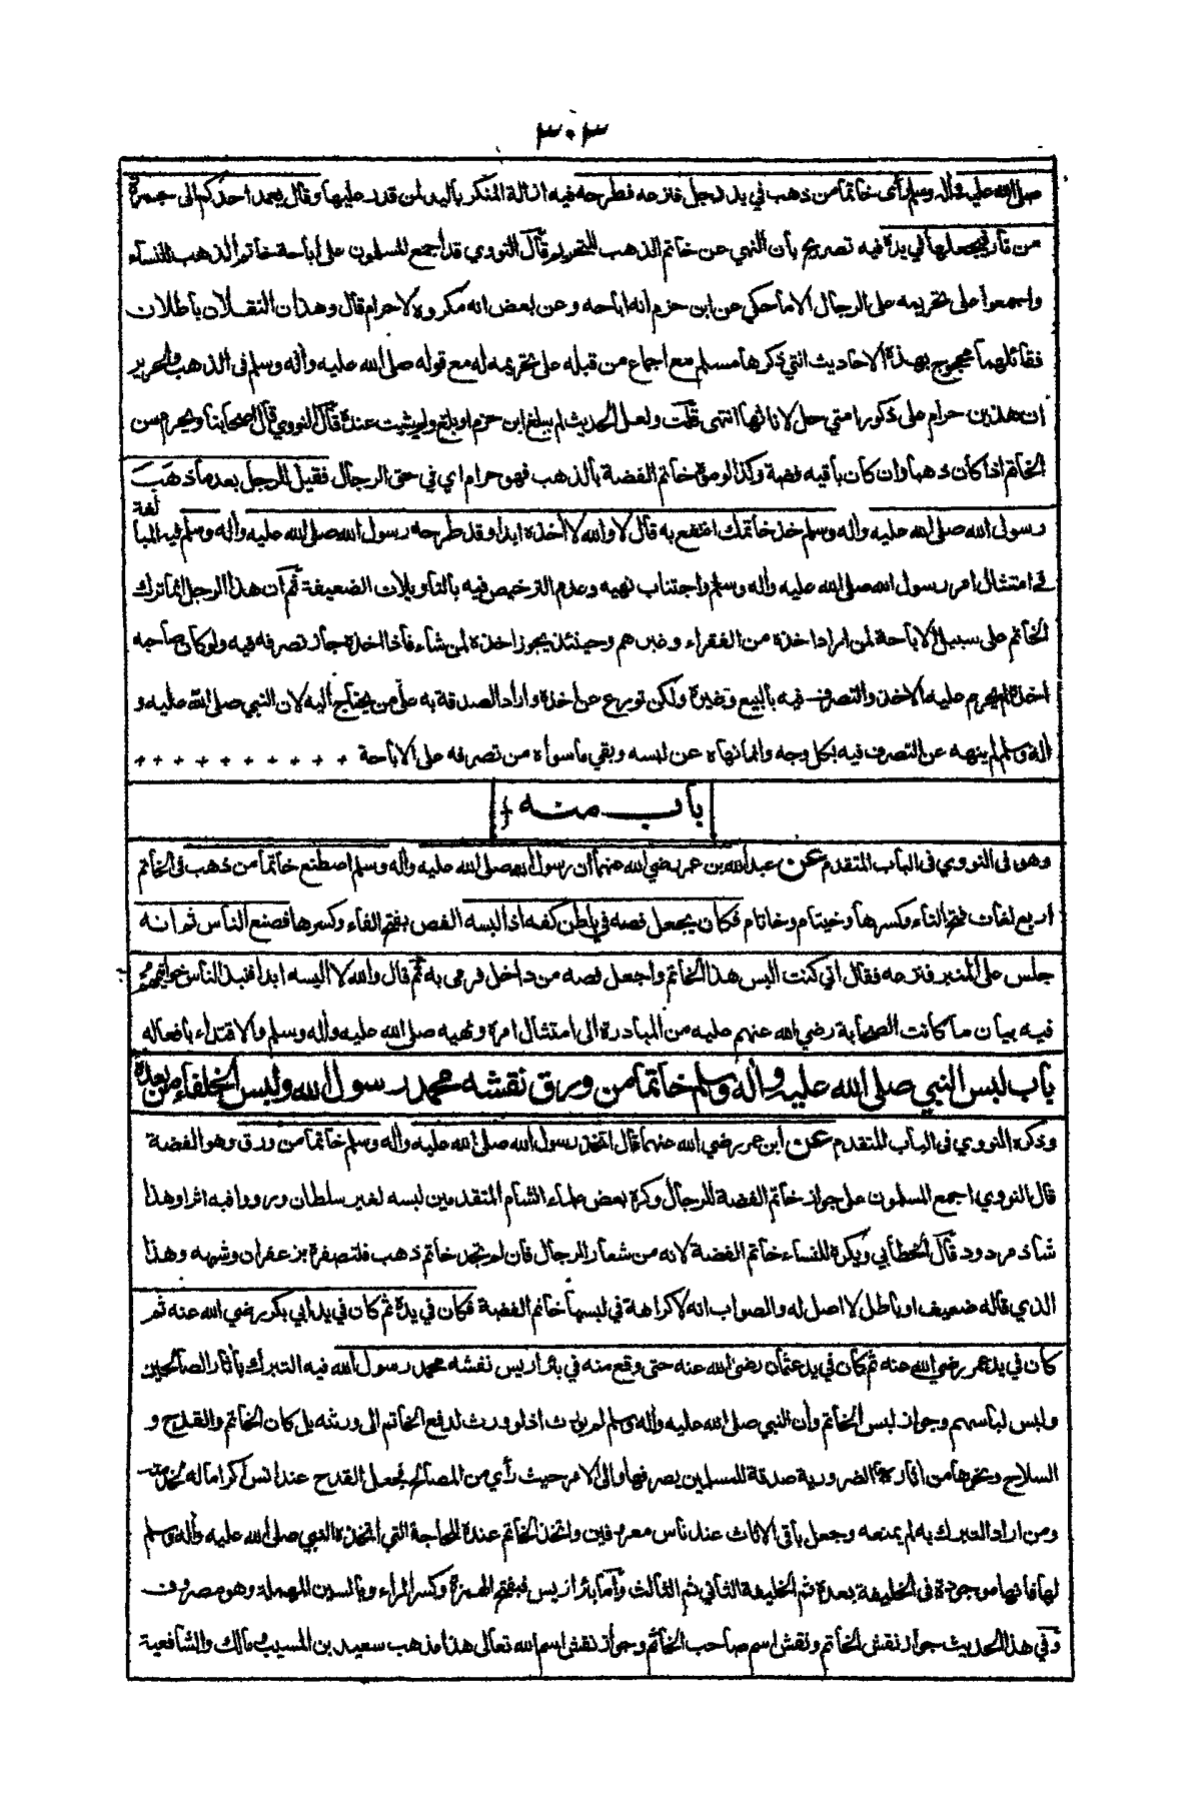 ٣٠٣
صلى الله عليه وأله وسلم رأى خاتما من ذهب في يد رجل فنزعه فطرحه فيه ازالة المنكر باليد لمن قدر عليها وقال يعمد احدكم الى جمرة
من نار فيجعلها في يده فيه تصريح بأن النهي عن خاتم الذهب للتحريم قال النووي قد اجمع المسلمون على أباحة خاتم الذهب للنساء
واجمعوا على تحريمه على الرجال الا ما حكي عن ابن حزم انه اباحه وعن بعض انه مكروه لا حرام قال وهذان النقلان باطلان
فقائلهما محجوج بهذه الاحاديث التي ذكرها مسلم مع اجماع من قبله على تحريمه له مع قوله صلى الله عليه وأله وسلم فى الذهب والحرير
ان هذين حرام على ذكور امتي حل لاناثها انتهى قلت ولعل الحديث لم يبلغ ابن حزم او بلغ ولم يثبت عنده قال النووي قال اصحابنا ويحرم سن
الخاتم اذا كان ذهبا وان كان باقيه فضة وكذا لو موه خاتم الفضة بالذهب فهو حرام اي في حق الرجال فقيل للرجل بعد ما ذهب
رسول الله صلى الله عليه وأله وسلم خذ خاتمك انتفع به قال لا والله لا أخذه ابدا وقد طرحه رسول الله صلى الله عليه وأله وسلم فيه المبالغة
في امتثال امر رسول الله صلى الله عليه وأله وسلم واجتناب نهيه وعدم الترخيص فيه بالتأويلات الضعيفة ثم ان هذا الرجل انما ترك
الخاتم على سبيل الاباحة لمن اراد اخذه من الفقراء وغيرهم وحينئذ يجوز اخذه لمن شاء فاذا اخذه جاز تصرفه فيه ولو كان صاحبه
اخذه لم يحرم عليه الاخذ والتصرف فيه بالبيع وغيره ولكن تورع عن اخذه واراد الصدقة به على من يحتاج اليه لان النبي صلى الله عليه و
أله وسلم لم ينهه عن التصرف فيه بكل وجه وانما نهاه عن لبسه وبقي ما سواه من تصرفه على الاباحة + + + + + + + + + + +
باب منه
وهو فى النووي فى الباب المتقدم عن عبد الله بن عمر رضي الله عنهما ان رسول الله صلى الله عليه وأله وسلم اصطنع خاتما من ذهب فى الخاتم
اربع لغات فتح التاء وكسرها وخيتام وخاتام فكان يجعل فصه في باطن كفه اذا لبسه الفص بفتح الفاء وكسرها فصنع الناس ثم انه
جلس على المنبر فنزعه فقال اني كنت البس هذا الخاتم واجعل فصه من داخل فرمى به ثم قال والله لا البسه ابدا فنبذ الناس خواتيمهم
فيه بيان ما كانت الصحابة رضي الله عنهم عليه من المبادرة الى امتثال امره ونهيه صلى الله عليه وأله وسلم والاقتداء بافعاله
باب لبس النبي صلى الله عليه وأله وسلم خاتما من ورق نقشه محمد رسول الله ولبس الخلفاء من بعده
وذكره النووي فى الباب المتقدم عن ابن عمر رضي الله عنهما قال اتخذ رسول الله صلى الله عليه وأله وسلم خاتما من ورق وهو الفضة
قال النووي اجمع المسلمون على جواز خاتم الفضة للرجال وكره بعض علماء الشام المتقدمين لبسه لغير سلطان ورووا فيه اثرا وهذا
شاذ مردود قال الخطابي ويكره للنساء خاتم الفضة لانه من شعار الرجال فان لم تجد خاتم ذهب فلتصفره بزعفران وشبهه وهذا
الذي قاله ضعيف او باطل لا اصل له والصواب انه لا كراهة في لبسها خاتم الفضة فكان في يده ثم كان في يد ابي بكر رضي الله عنه ثم
كان في يد عمر رضي الله عنه ثم كان في يد عثمان رضي الله عنه حتى وقع منه في بئر اريس نقشه محمد رسول الله فيه التبرك بأثار الصالحين
ولبس لباسهم وجواز لبس الخاتم وأن النبي صلى الله عليه وأله وسلم لم يورث اذ لو ورث لدفع الخاتم الى ورثته بل كان الخاتم والقدح و
السلاح ونحوها من أثاره الضرورية صدقة للمسلمين يصرفها والى الامر حيث رأى من المصالح فجعل القدح عند انس اكراما له لخدمته
ومن اراد التبرك به لم يمنعه وجعل باقي الاثاث عند ناس معروفين واتخذ الخاتم عنده للحاجة التي اتخذه النبي صلى الله عليه وأله وسلم
لها فانها موجودة فى الخليفة بعده ثم الخليفة الثاني ثم الثالث واما بئر اريس فبفتح الهمزة وكسر الراء وبالسين المهملة وهو مصروف
وفي هذا الحديث جواز نقش الخاتم ونقش اسم صاحب الخاتم وجواز نقش اسم الله تعالى هذا مذهب سعيد بن المسيب ومالك والشافعية